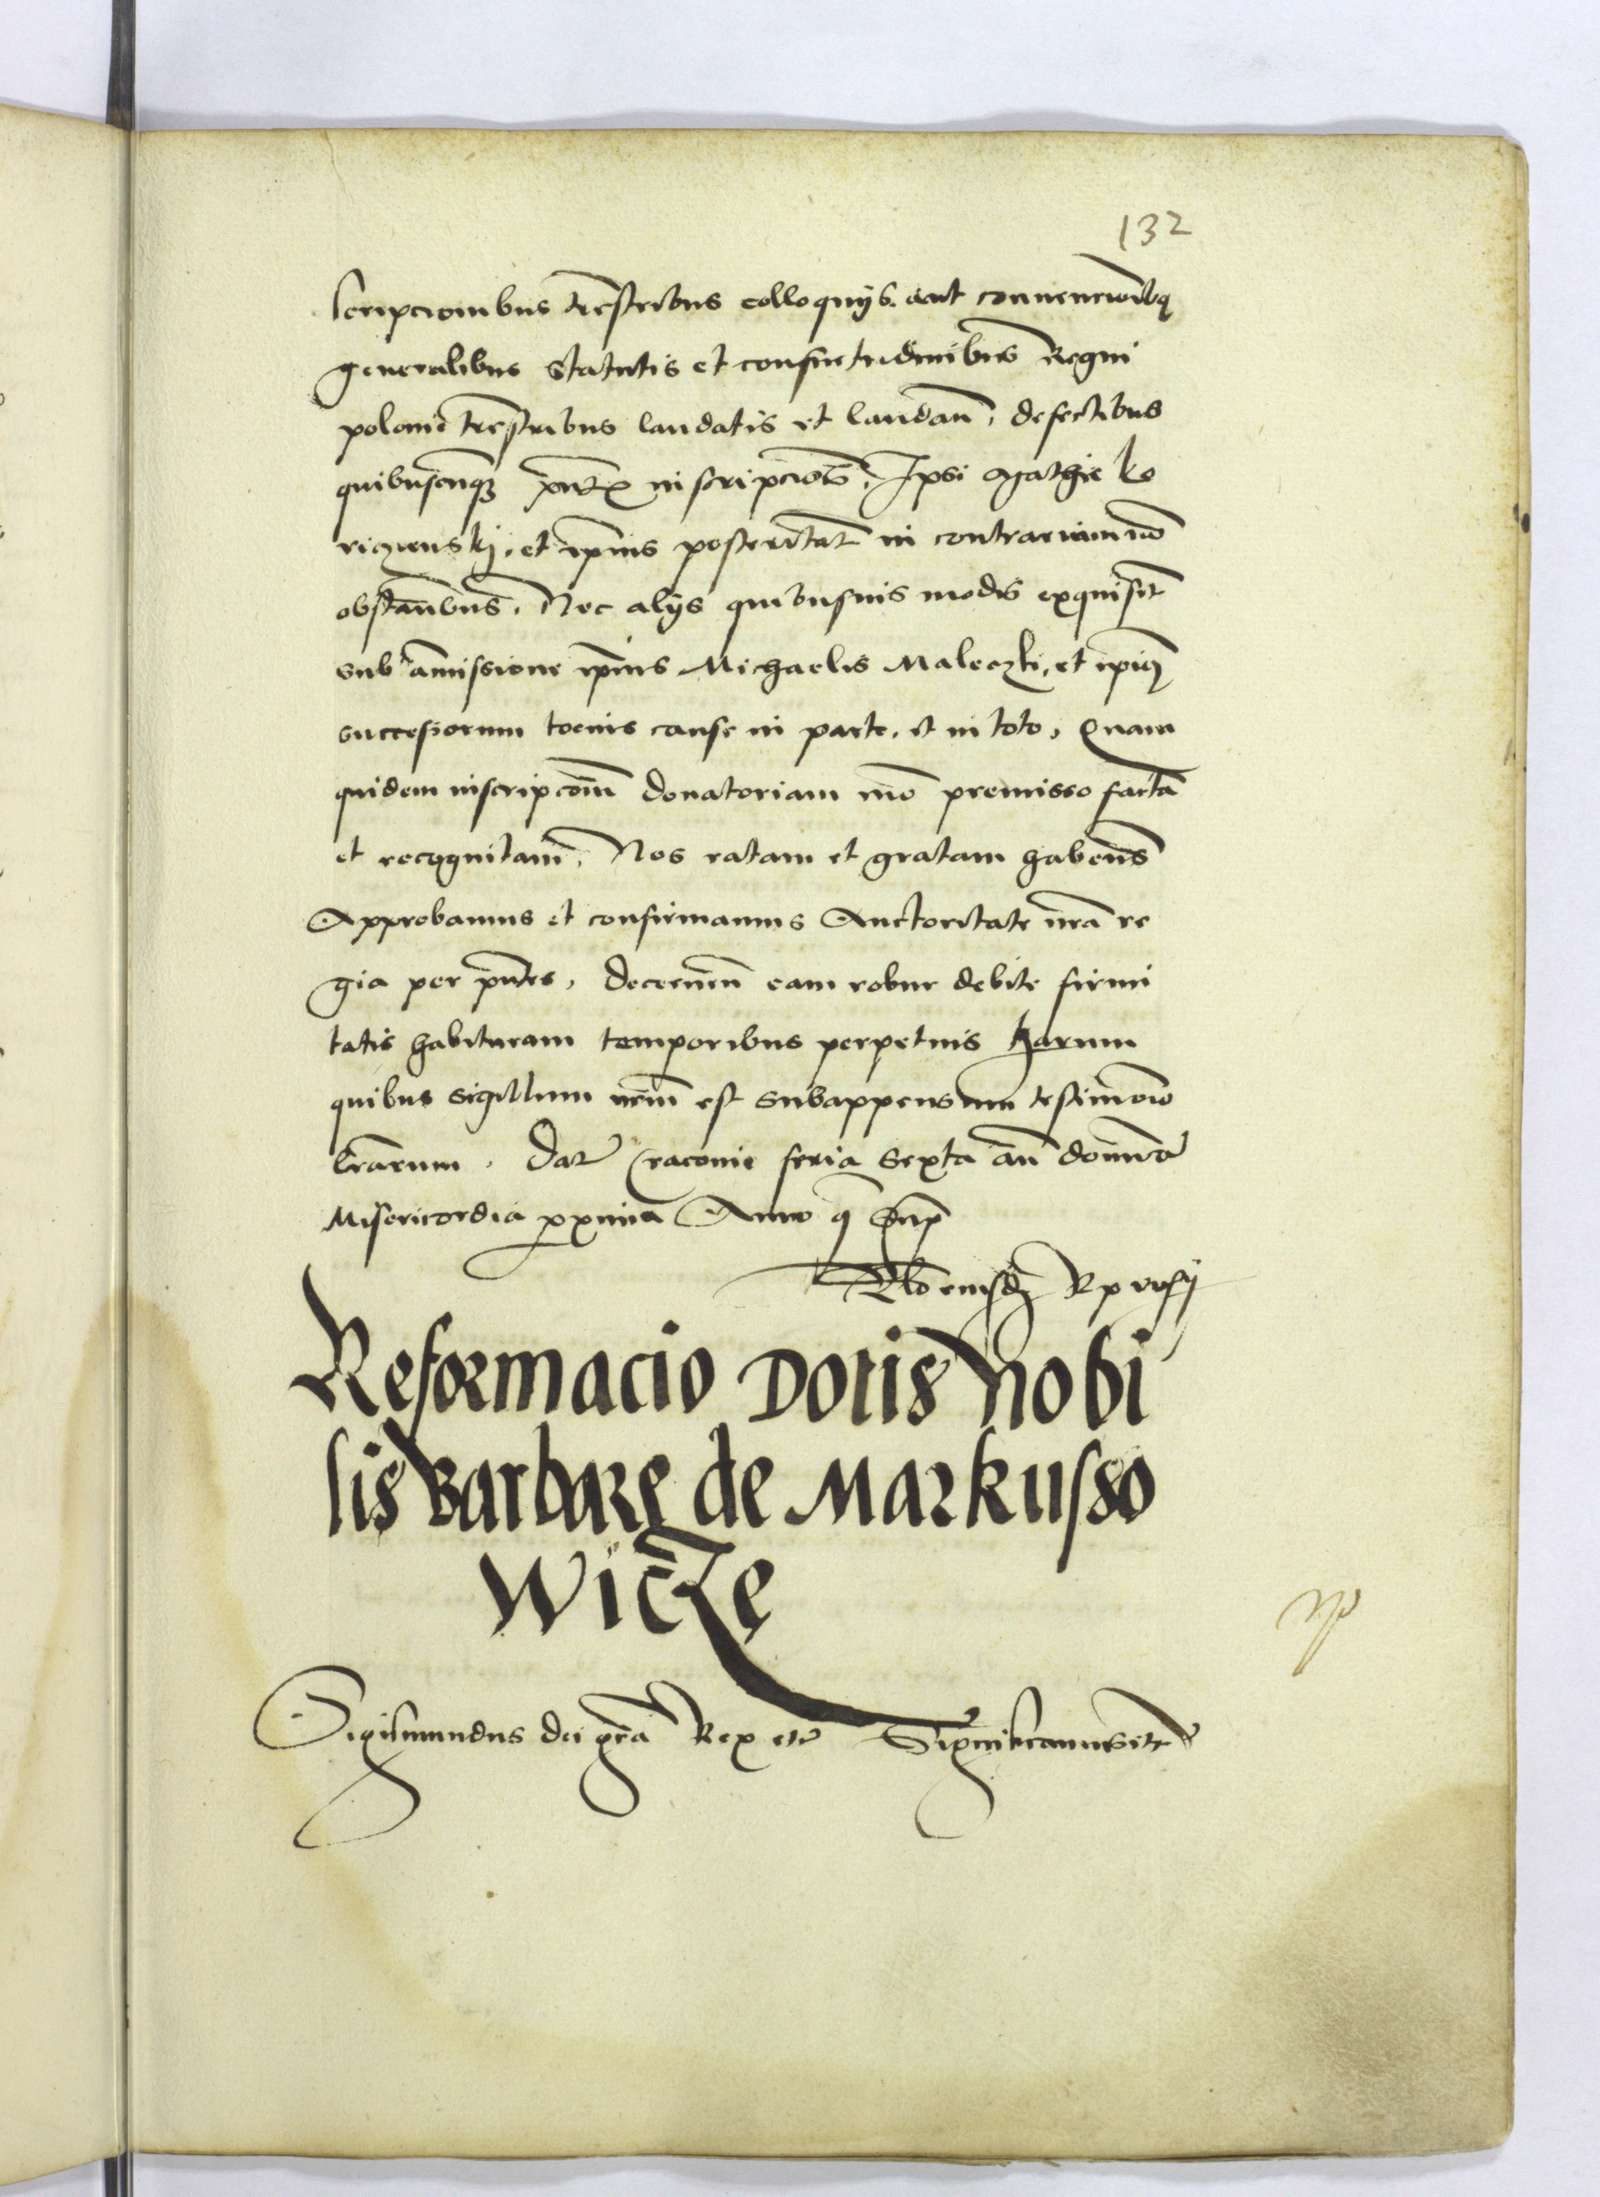 132
scripcionibus trestribus colloquijs. aut convencioibq
generalibus Statutis et consuetudinibus Regni
polonie trestribus laudatis et laudan̄. defectibus
quibuscunq3 inscripcioīs. Ipsi Agathie ko
et ip̄ius posteritat̄ in contrarium no͞
obstan̄tibus. Nec alijs quibusuis modis exquisit̄
sub amissione ip̄ius Michaelis Maleczki, et ip̄ius
successorum tocius cause in parte. et in toto. Quam
quidem inscripcōm̄ donatoriam mō premisso factā
et recognitam. Nos ratam et gratam haben̄s
Approbamus et confirmamus Auctoritate nr̄a re
gia per pn̄tes. decernen̄ eam robur debite firmi
tatis habituram temporibus perpetuis harum
quibus sigillum nr̄m̄ est subappensum testimonio
lr̄arum. Dat̄ Cracovie feria sexta an̄ domnicā
Misericordia pxima Anno q͞ Sup͞
Reformacio Dotis Nobi
lis Barbare de Markusso
Wicze
Sigismundus dei gr̄a Rex etc̄ Significamus etc̄